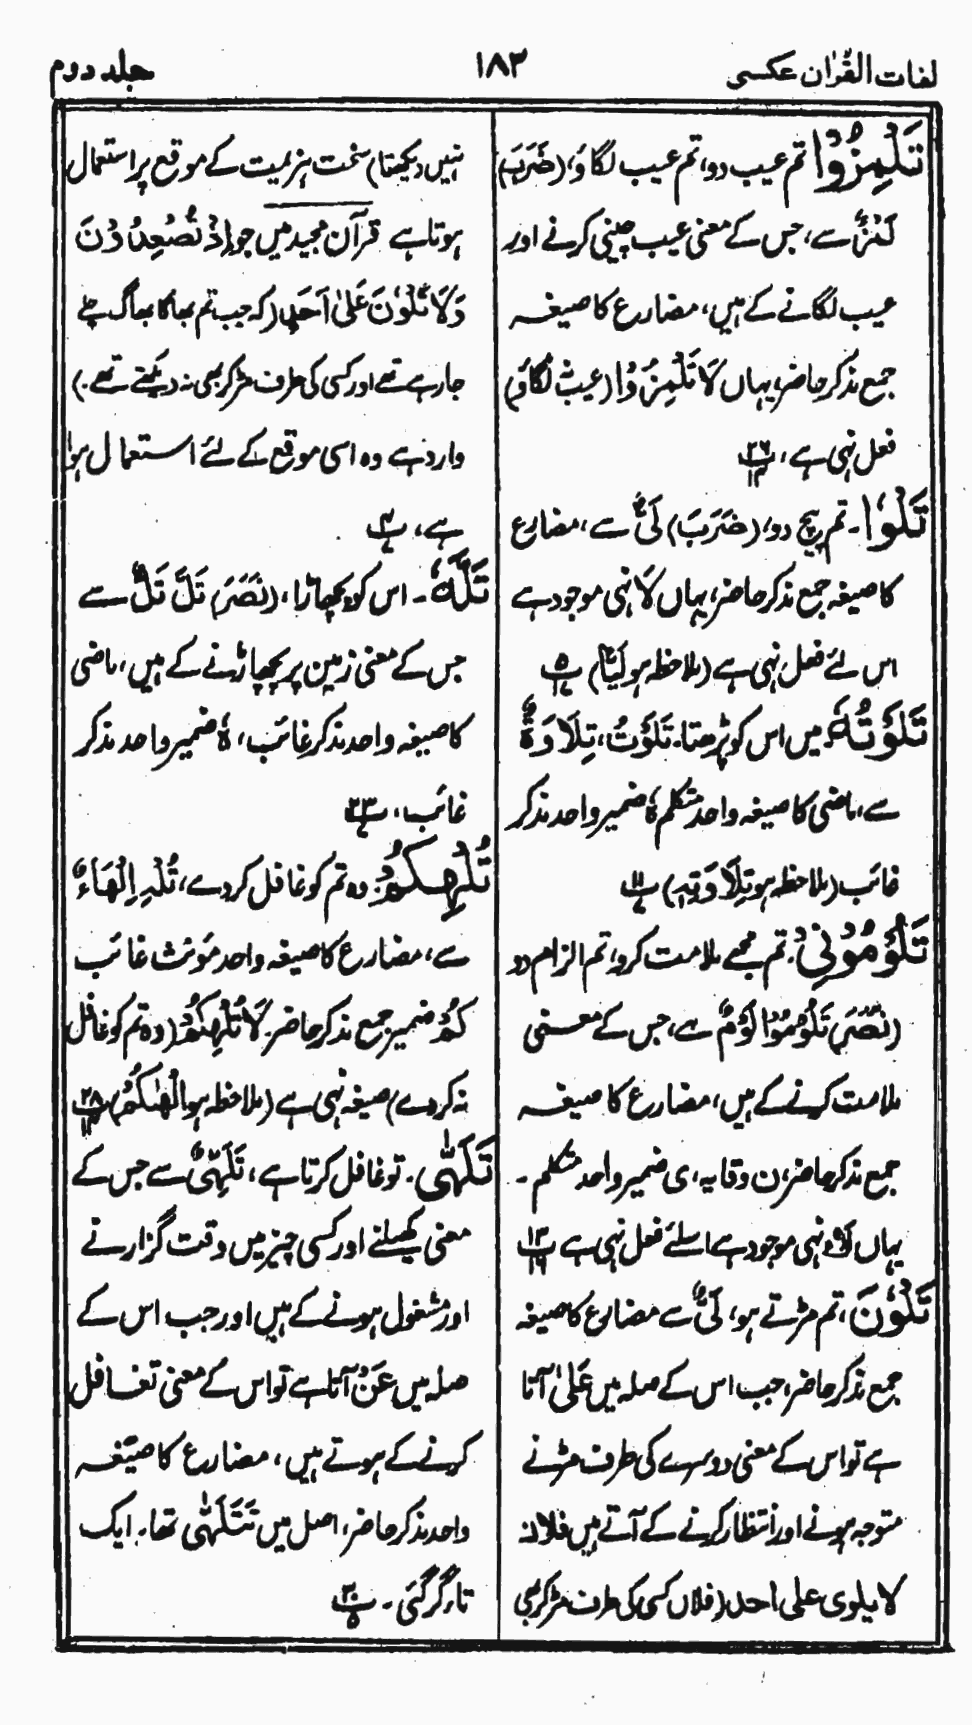 لغات القرآن عکسی
۱۸۳
جلد دوم
تَلْمِزُوْا تم عیب دو، تم عیب لگاؤ، (ضَرَبَ)
لَمْزٌ سے، جس کے معنی عیب چینی کرنے اور
عیب لگانے کے ہیں، مضارع کا صیغہ
جمع مذکر حاضر، یہاں لَا تَلْمِزُوْا (عیب نہ لگاؤ)
فعل نہی ہے، پ۲۶
تَلْوٗا۔ تم پیچ دو، (ضَرَبَ) لَیٌّ سے، مضارع
کا صیغہ جمع مذکر حاضر، یہاں لَا نہی موجود ہے
اس لئے فعل نہی ہے (ملاحظہ ہو لَیًّا) پ۵
تَلَوْتُهٗ۔ میں اس کو پڑھتا۔ تَلَوْتُ، تِلَاوَةٌ
سے، ماضی کا صیغہ واحد متکلم هٗ ضمیر واحد مذکر
غائب (ملاحظہ ہو تِلَاوَتِهٖ) پ۱۱
تَلُوْمُوْنِیْ۔ تم مجھے ملامت کرو، تم الزام دو
(نَصَرَ) تَلُوْمُوْا لَوْمٌ سے، جس کے معنی
ملامت کرنے کے ہیں، مضارع کا صیغہ
جمع مذکر حاضر، ن وقایہ، ی ضمیر واحد متکلم۔
یہاں لَا نہی موجود ہے اسلئے فعل نہی ہے پ۱۳
تَلْوٗنَ، تم مڑتے ہو، لَیٌّ سے مضارع کا صیغہ
جمع مذکر حاضر، جب اس کے صلہ میں عَلٰی آتا
ہے تو اس کے معنی دوسرے کی طرف مڑنے
متوجہ ہونے اور انتظار کرنے کے آتے ہیں فلان
لا یلوی علی احد (فلاں کسی کی طرف مڑ کر بھی
نہیں دیکھتا) سخت ہزیمت کے موقع پر استعمال
ہوتا ہے قرآن مجید میں جو اِذْ تُصْعِدُوْنَ
وَلَا تَلْوٗنَ عَلٰی اَحَدٍ (کہ جب تم بھاگا بھاگ چلے
جا رہے تھے اور کسی کی طرف مڑ کر بھی نہ دیکھتے تھے۔)
وارد ہے وہ اسی موقع کے لئے استعمال ہوا
ہے، پ۴
تَلَّهٗ۔ اس کو پچھاڑا، (نَصَرَ) تَلَّ تَلٌّ سے
جس کے معنی زمین پر پچھاڑنے کے ہیں، ماضی
کا صیغہ واحد مذکر غائب، هٗ ضمیر واحد مذکر
غائب، پ۲۳
تُلْهِكُمْ: وہ تم کو غافل کردے، تُلْهِ اِلْهَاءٌ
سے، مضارع کا صیغہ واحد مؤنث غائب
كُمْ ضمیر جمع مذکر حاضر۔ لَا تُلْهِكُمْ (وہ تم کو غافل
نہ کردے) صیغہ نہی ہے (ملاحظہ ہو اَلْهٰكُمْ) پ۲۸
تَلَهّٰی۔ تو غافل کرتا ہے، تَلَهِّیٌ سے جس کے
معنی کھیلنے اور کسی چیز میں وقت گزارنے
اور مشغول ہونے کے ہیں اور جب اس کے
صلہ میں عَنْ آتا ہے تو اس کے معنی تغافل
کرنے کے ہوتے ہیں، مضارع کا صیغہ
واحد مذکر حاضر، اصل میں تَتَلَهّٰی تھا۔ ایک
تاء گر گئی۔ پ۳۰